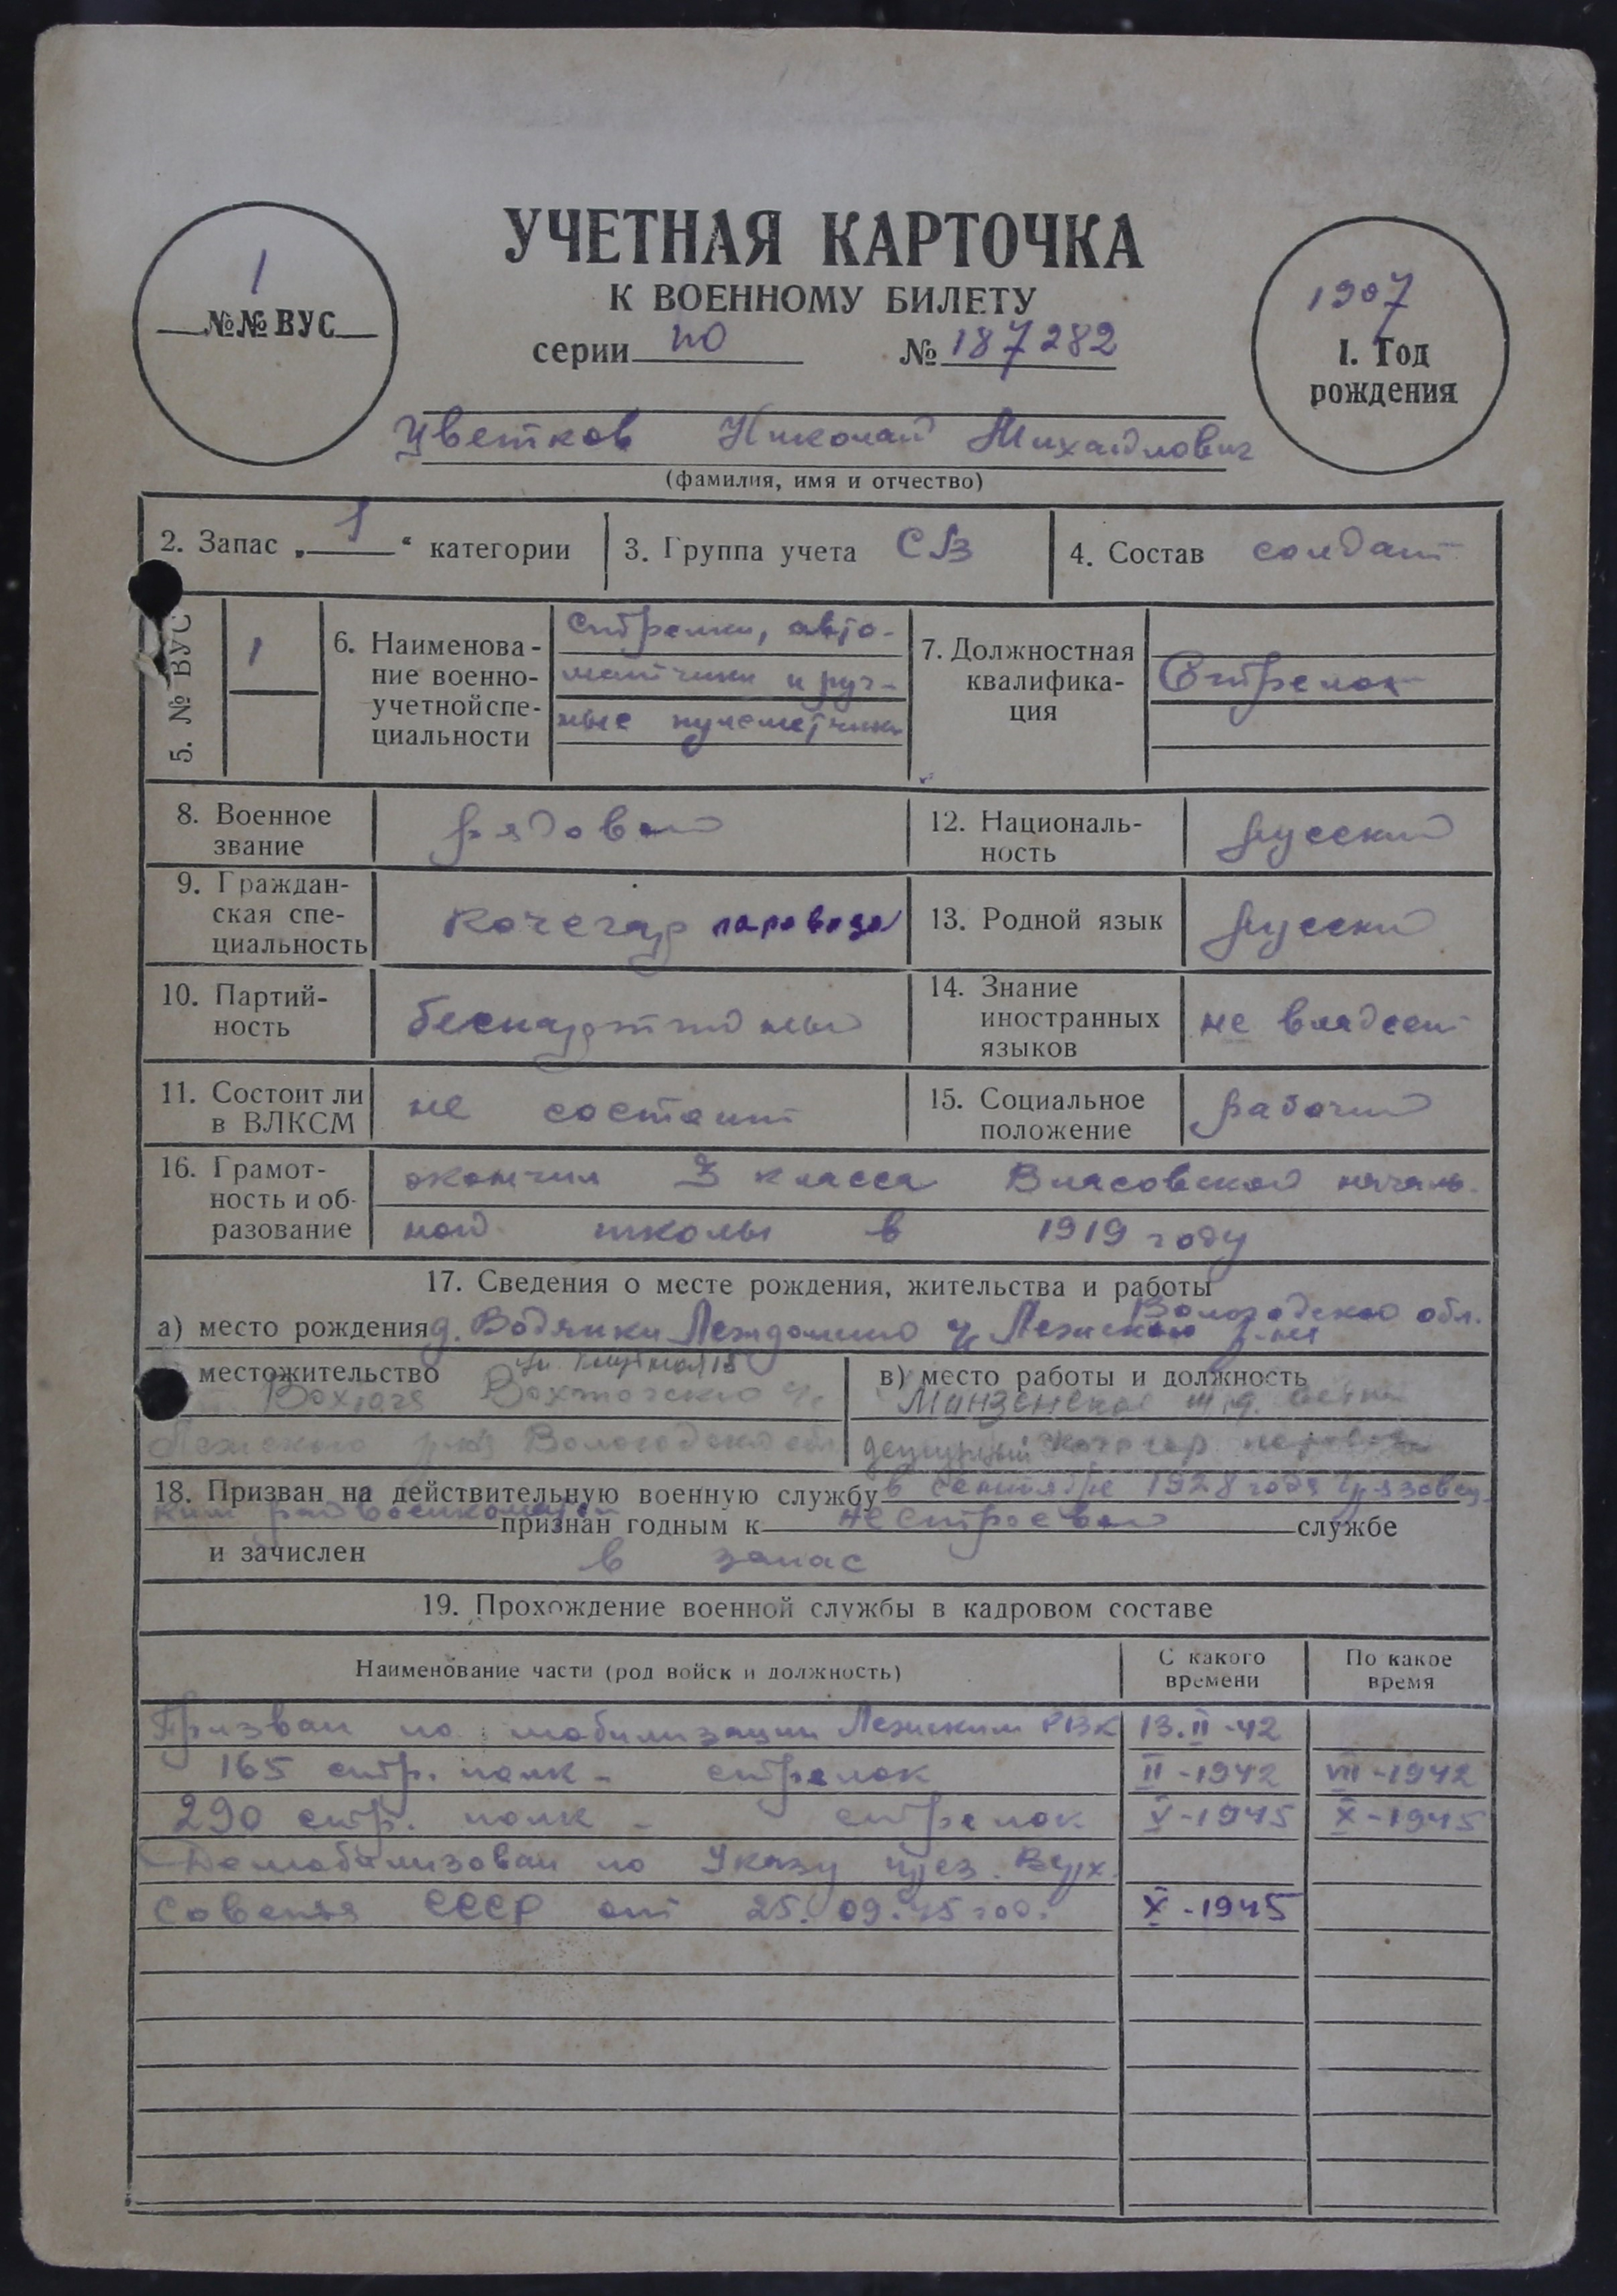 УЧЕТНАЯ КАРТОЧКА
К ВОЕННОМУ БИЛЕТУ
серии по № 187282
1
№№ ВУС
1907
1. Год
рождения
Цветков Николай Михайлович
(фамилия, имя и отчество)
2. Запас „ 1 “ категории
3. Группа учета СВ
4. Состав солдат
5. № ВУС
1
6. Наименова-
ние военно-
учетной спе-
циальности
Стрелки, авто-
матчики и руч-
ные пулеметчики
7. Должностная
квалифика-
ция
Стрелок
8. Военное
звание
рядовой
12. Националь-
ность
русский
9. Граждан-
ская спе-
циальность
кочегар паровоза
13. Родной язык
русский
10. Партий-
ность
беспартийный
14. Знание
иностранных
языков
не владеет
11. Состоит ли
в ВЛКСМ
не состоит
15. Социальное
положение
рабочий
16. Грамот-
ность и об-
разование
окончил 3 класса Власовской началь-
ной школы в 1919 году
17. Сведения о месте рождения, жительства и работы
Вологодской обл.
а) место рождения д. Водянки Леждомского Лежского р-на
местожительство
Вохтога Вохтожского
Лежского р-на Вологодской обл
в) место работы и должность
Монзенская ж.д.
дежурный кочегар паровоза
18. Призван на действительную военную службу в сентябре 1928 года Грязовец-
ким райвоенкоматом признан годным к нестроевой службе
и зачислен в запас
19. Прохождение военной службы в кадровом составе
Наименование части (род войск и должность)
С какого
времени
По какое
время
Призван по мобилизации Лежским РВК 13.II-42
165 стр. полк - стрелок II-1942 VIII-1942
290 стр. полк - стрелок V-1945 X-1945
Демобилизован по Указу през. Верх.
Совета СССР от 25.09.45 год. X-1945